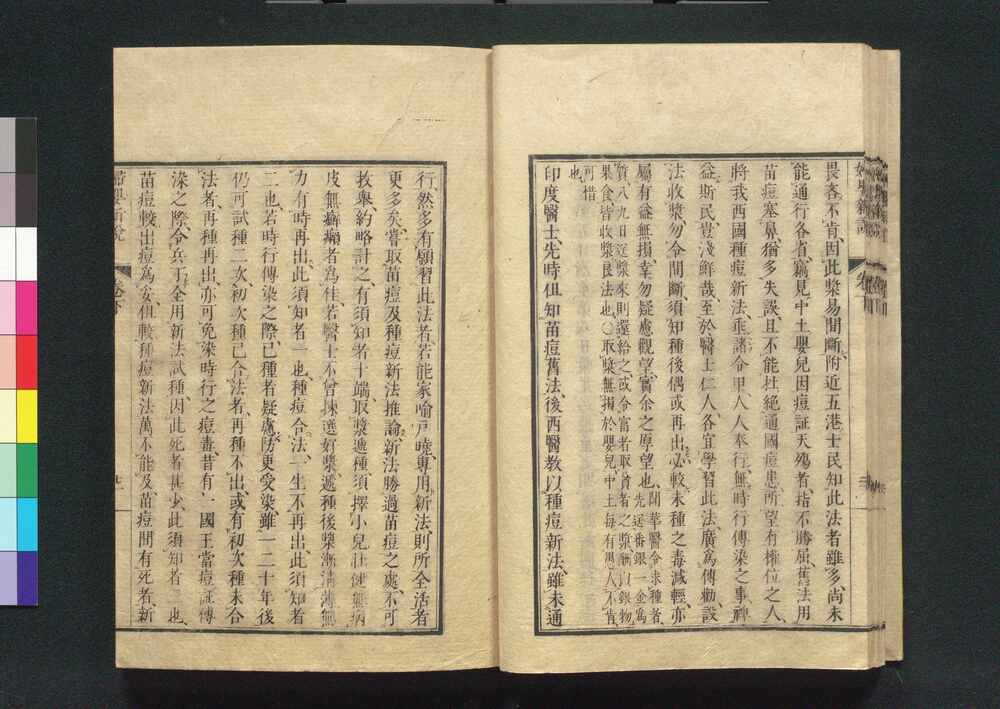 畏吝不肯因此漿易間斷附近五港士民知此法者雖多尚未
能通行各省竊見中土嬰兒因痘証夭殤者指不勝屈舊法用
苗痘塞鼻猶多失誤且不能杜絕通國痘患所望有權位之人
將我西國種痘新法垂諸令甲人人奉行無時行傳染之事裨
益斯民豈淺鮮哉至於醫士仁人各宜學習此法廣為傳勸設
法收漿勿令間斷須知種後偶或再出必較未種之毒減輕亦
屬有益無損幸勿疑慮觀望實余之厚望也
聞華醫令求種者先送番銀一金為
質八九日送漿來則還給之或令富者取貧者之漿酬以銀物
果食皆收漿良法也○取漿無損於嬰兒中土每有愚人不肯
可惜也
印度醫士先時但知苗痘舊法後西醫教以種痘新法雖未通
行然多有願習此法者若能家喻戶曉專用新法則所全活者
更多矣嘗取苗痘及種痘新法推論新法勝過苗痘之處不可
枚舉約略計之有須知者十端取漿遞種須擇小兒壯健無病
皮無癬癩者為佳若醫士不曾揀選好漿遞種後漿漸清薄無
力有時再出此須知者一也種痘合法一生不再出此須知者
二也若時行傳染之際已種者疑慮防更受染雖一二十年後
仍可試種二次初次種已合法者再種不出或有初次種未合
法者再種再出亦可免染時行之痘毒昔有一國王當痘証傳
染之際令兵丁全用新法試種因此死者甚少此須知者三也
苗痘較出痘為妥但較種痘新法萬不能及苗痘間有死者新
婦嬰新說
卷下